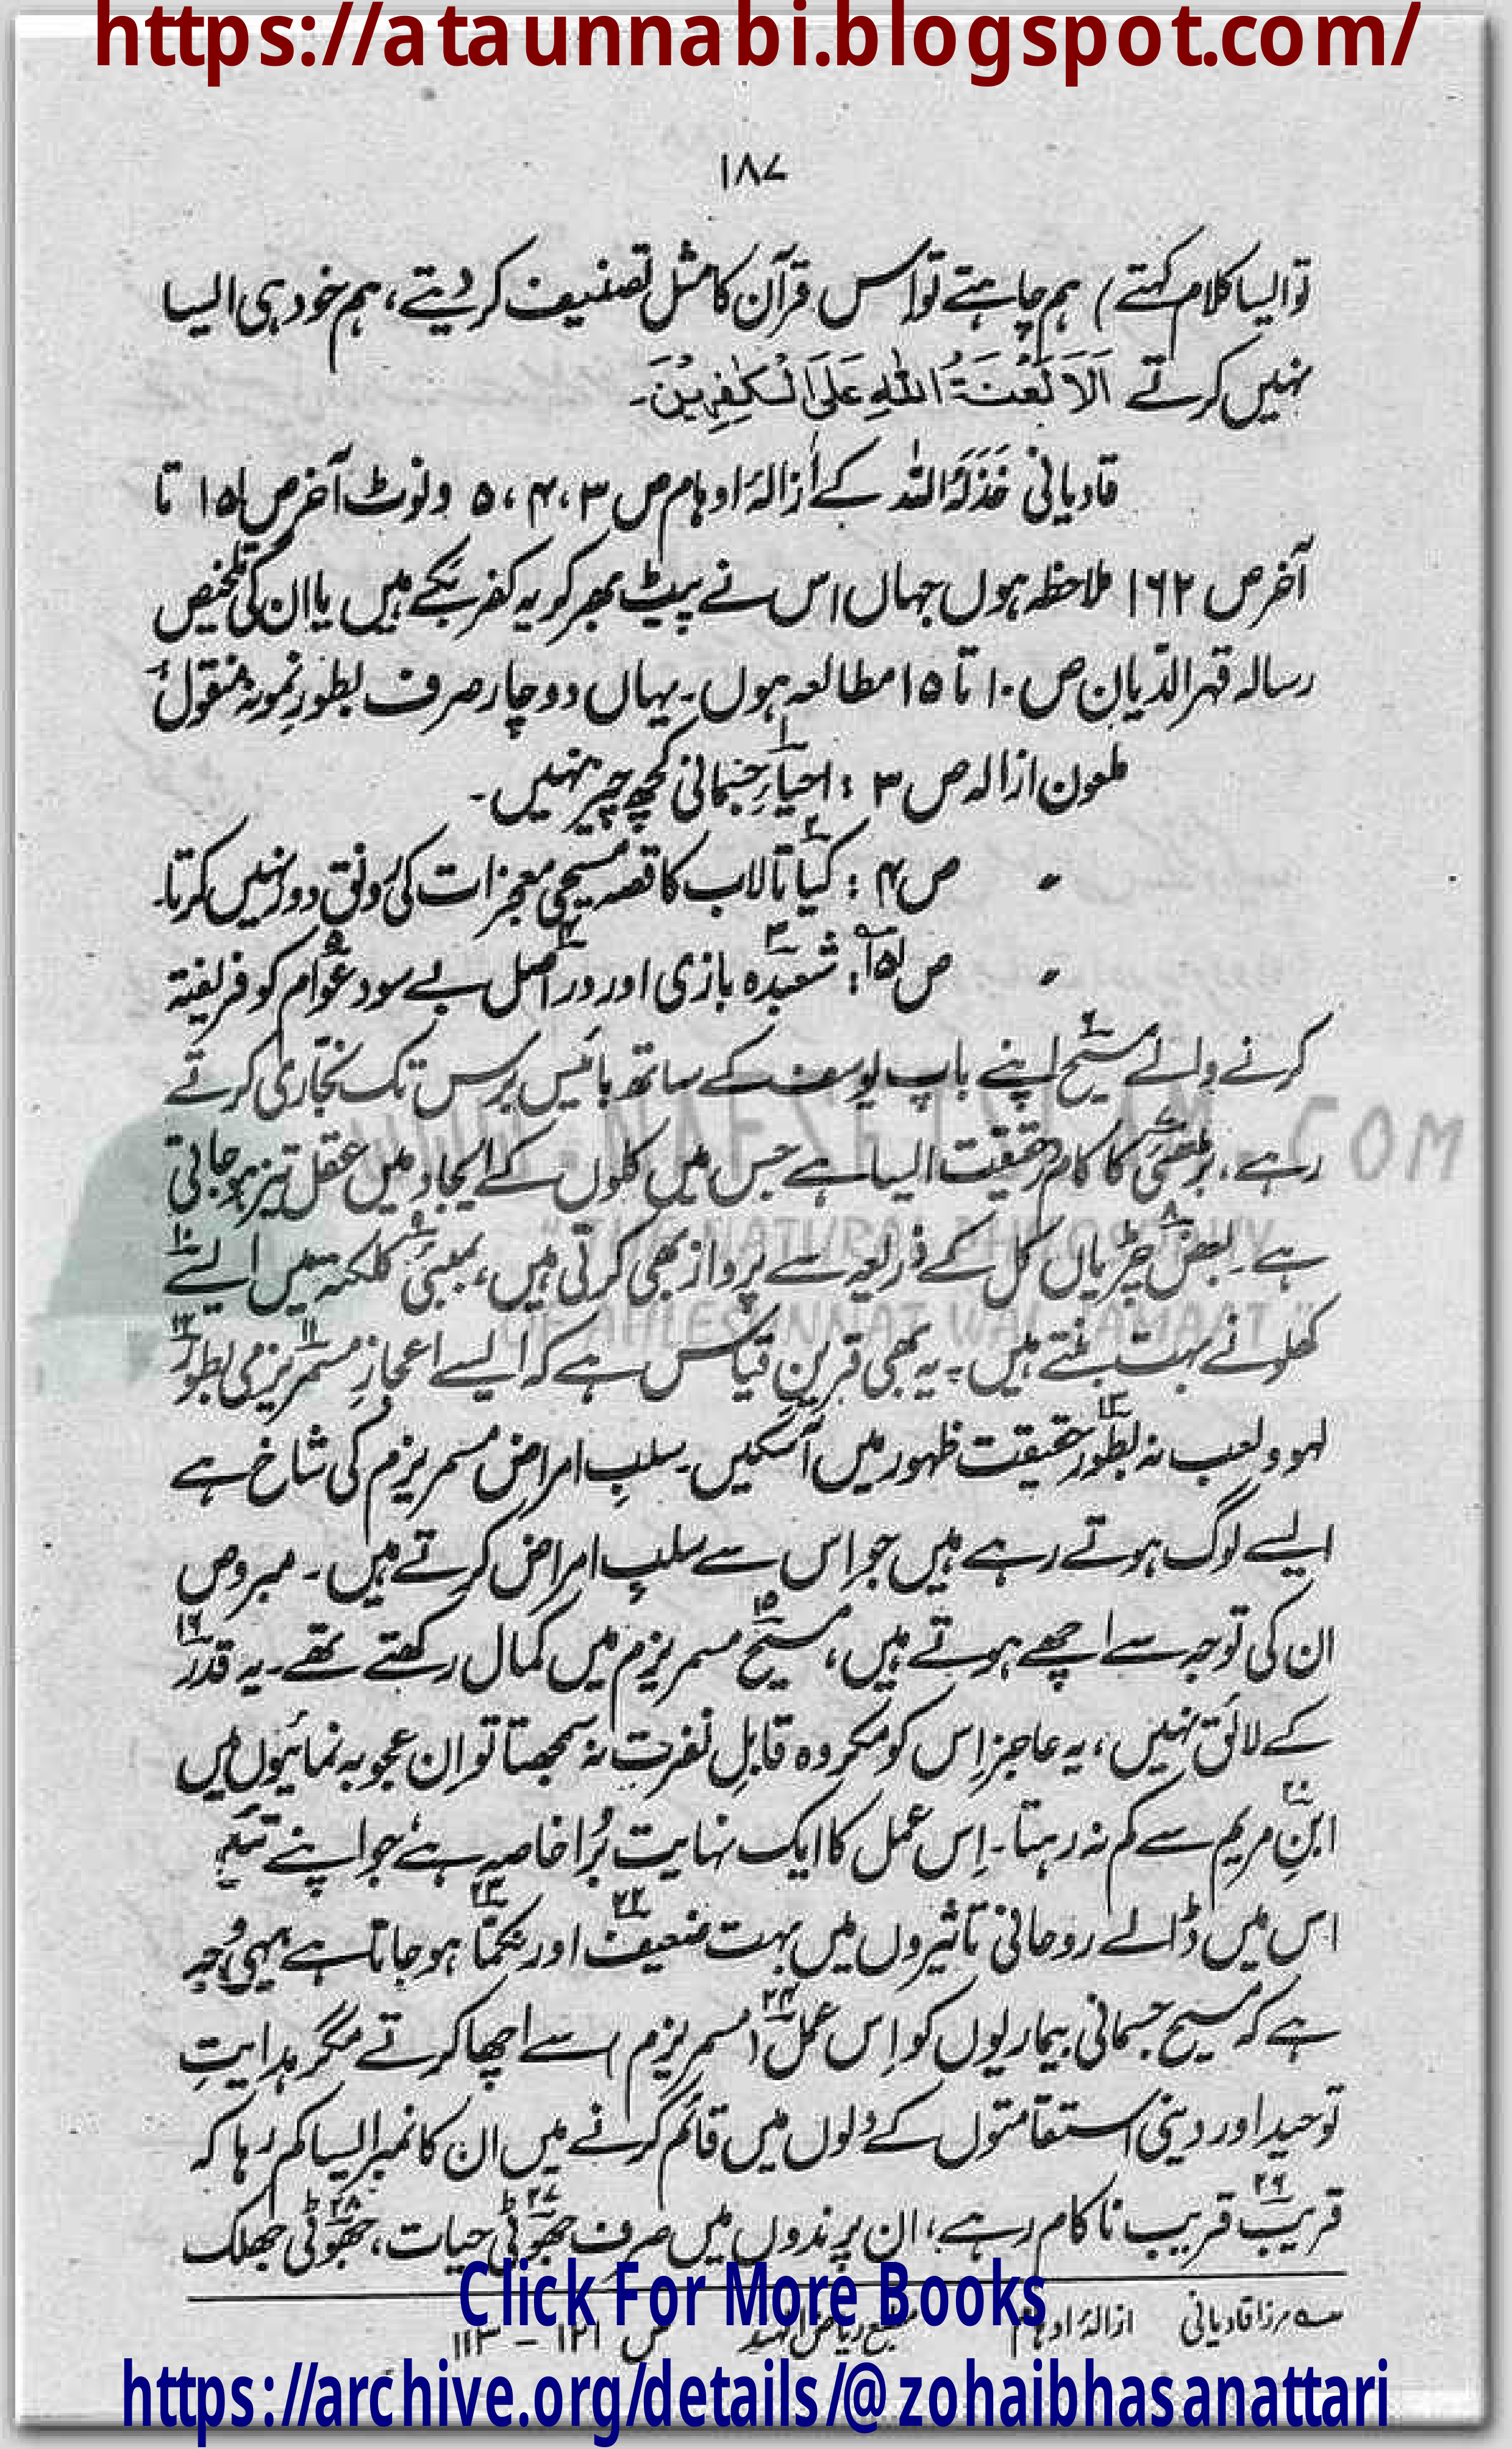 https://ataunnabi.blogspot.com/
۱۸۷
تو ایسا کلام کہتے) ہم چاہتے تو اس قرآن کا مثل تصنیف کر دیتے، ہم خود ہی ایسا
نہیں کرتے اَلَا لَعْنَۃُ اللّٰہِ عَلَی الْکٰفِرِیْنَ۔
قادیانی خَذَلَہُ اللہ کے ازالۂ اوہام ص ۳، ۴، ۵ و نوٹ آخر ص ۱۵۱ تا
آخر ص ۱۶۲ ملاحظہ ہوں جہاں اس نے پیٹ بھر کر یہ کفر بکے ہیں یا ان کی تلخیص
رسالہ قہر الدیان ص ۱۰ تا ۱۵ مطالعہ ہوں۔ یہاں دو چار صرف بطور نمونہ منقول؛
ملعون ازالہ ص ۳ : احیاءِ۱ جسمانی کچھ چیز نہیں۔
〃 ص ۴ : کیا۲ تالاب کا قصہ مسیحی معجزات کی رونق دور نہیں کرتا۔
〃 ص ۱۵۱ : شعبدہ۳ بازی اور دراصل۴ بے سود عوام۵ کو فریفتہ
کرنے والے مسیح۶ اپنے باپ یوسف کے ساتھ بائیس برس تک نجاری کرتے
رہے، بڑھئی۷ کا کام درحقیقت ایسا ہے جس میں کلوں کے ایجاد میں عقل تیز ہو جاتی
ہے۔ بعض۸ چڑیاں کل کے ذریعہ سے پرواز بھی کرتی ہیں، بمبئی۹ کلکتہ میں ایسے۱۰
کھلونے بہت بنتے ہیں۔ یہ بھی قرین قیاس ہے کہ ایسے اعجاز مسمریزمی۱۱ بطور۱۲
لہو و لعب نہ بطور۱۳ حقیقت ظہور میں آسکیں۔ سلبِ امراض مسمریزم کی شاخ ہے
ایسے لوگ ہوتے رہے ہیں جو اس سے سلبِ امراض کرتے ہیں۔ مبروص
ان کی توجہ سے اچھے ہوتے ہیں، مسیح۱۵ مسمریزم میں کمال رکھتے تھے۔ یہ قدر۱۶
کے لائق نہیں، یہ عاجز اِس کو مکروہ قابلِ نفرت نہ سمجھتا تو اِن عجوبہ نمائیوں میں
ابنِ۲۰ مریم سے کم نہ رہتا۔ اِس عمل کا ایک نہایت بُرا خاصہ ہے، جو اپنے تئیں
اس میں ڈالے روحانی تاثیروں میں بہت ضعیف۲۲ اور نکما۲۳ ہو جاتا ہے یہی وجہ
ہے کہ مسیح جسمانی بیماریوں کو اِس عمل۲۴ (مسمریزم) سے اچھا کرتے مگر ہدایتِ
توحید اور دینی استقامتوں کے دلوں میں قائم کرنے میں ان کا نمبر ایسا کم رہا کہ
قریب۲۶ قریب ناکام رہے، ان پرندوں میں صرف جھوٹی۲۷ حیات، جھوٹی۲۸ جھلک
مرزا قادیانی ازالۂ اوہام مطبع ریاض الہند ص ۱۲۱ - ۱۱۳
Click For More Books
https://archive.org/details/@zohaibhasanattari
WWW.NAFSEISLAM.COM
"THE NATURAL PHILOSOPHY
OF AHLESUNNAT WAL JAMAAT"